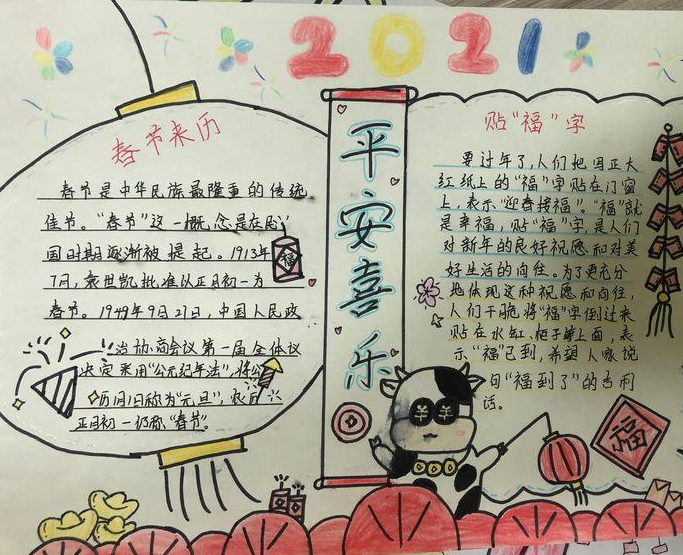 2021
春节来历
春节是中华民族最隆重的传统
佳节。“春节”这一概念是在民
国时期逐渐被提起。1913年
7月,袁世凯批准以正月初一为
春节。1949年9月27日,中国人民政
治协商会议第一届全体议
决定采用“公元纪年法”,将公
历1月1日称为“元旦”,农历
正月初一仍称“春节”。
福
平安喜乐
贴“福”字
要过年了,人们把写正大
红纸上的“福”字贴在门窗
上,表示“迎春接福”。“福”就
是幸福,贴“福”字,是人们
对新年的良好祝愿和对美
好生活的向往。为了更充分
地体现这种祝愿和向往,
人们干脆将“福”字倒过来
贴在水缸,柜子等上面,表
示“福”已到,希望人家说
句“福到了”的吉利
话。
福